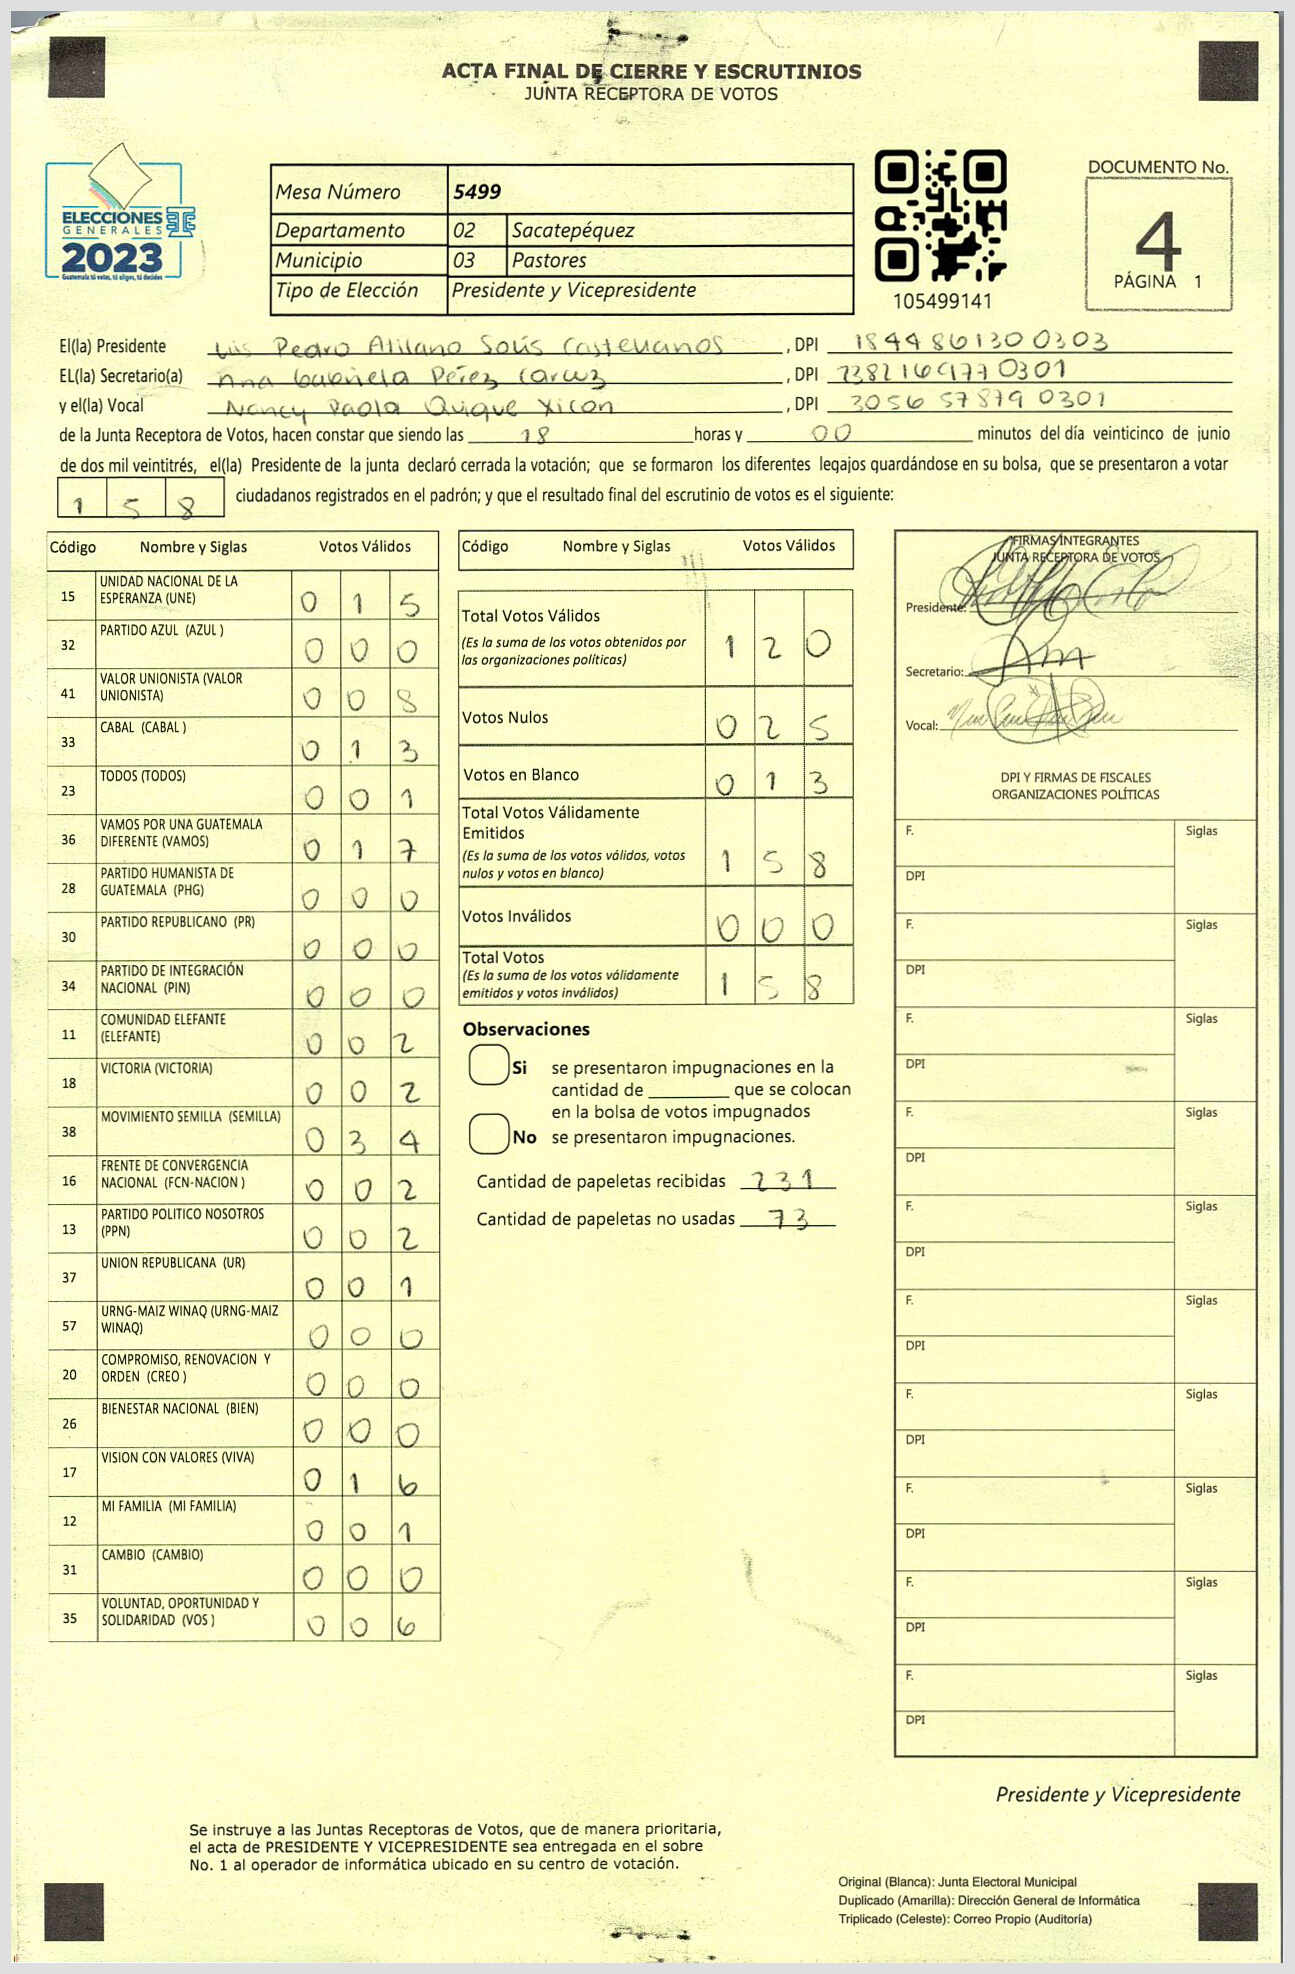 ACTA FINAL DE CIERRE Y ESCRUTINIOS
JUNTA RECEPTORA DE VOTOS
ELECCIONES
GENERALES
2023
Guatemala tú votas, tú eliges, tú decides
Mesa Número 5499
Departamento 02 Sacatepéquez
Municipio 03 Pastores
Tipo de Elección Presidente y Vicepresidente
105499141
DOCUMENTO No.
4
PÁGINA 1
El(la) Presidente Luis Pedro Solís Castellanos, DPI 1844861300303
EL(la) Secretario(a) Ana Gabriela Pérez, DPI 0301
y el(la) Vocal Nancy Paola Quique Xicon, DPI 3056578790301
de la Junta Receptora de Votos, hacen constar que siendo las 18 horas y 00 minutos del día veinticinco de junio
de dos mil veintitrés, el(la) Presidente de la junta declaró cerrada la votación; que se formaron los diferentes legajos guardándose en su bolsa, que se presentaron a votar
1 5 8 ciudadanos registrados en el padrón; y que el resultado final del escrutinio de votos es el siguiente:
Código Nombre y Siglas Votos Válidos
15 UNIDAD NACIONAL DE LA ESPERANZA (UNE) 0 1 5
32 PARTIDO AZUL (AZUL ) 0 0 0
41 VALOR UNIONISTA (VALOR UNIONISTA) 0 0 8
33 CABAL (CABAL ) 0 1 3
23 TODOS (TODOS) 0 0 1
36 VAMOS POR UNA GUATEMALA DIFERENTE (VAMOS) 0 1 7
28 PARTIDO HUMANISTA DE GUATEMALA (PHG) 0 0 0
30 PARTIDO REPUBLICANO (PR) 0 0 0
34 PARTIDO DE INTEGRACIÓN NACIONAL (PIN) 0 0 0
11 COMUNIDAD ELEFANTE (ELEFANTE) 0 0 2
18 VICTORIA (VICTORIA) 0 0 2
38 MOVIMIENTO SEMILLA (SEMILLA) 0 3 4
16 FRENTE DE CONVERGENCIA NACIONAL (FCN-NACION ) 0 0 2
13 PARTIDO POLITICO NOSOTROS (PPN) 0 0 2
37 UNION REPUBLICANA (UR) 0 0 1
57 URNG-MAIZ WINAQ (URNG-MAIZ WINAQ) 0 0 0
20 COMPROMISO, RENOVACION Y ORDEN (CREO ) 0 0 0
26 BIENESTAR NACIONAL (BIEN) 0 0 0
17 VISION CON VALORES (VIVA) 0 1 6
12 MI FAMILIA (MI FAMILIA) 0 0 1
31 CAMBIO (CAMBIO) 0 0 0
35 VOLUNTAD, OPORTUNIDAD Y SOLIDARIDAD (VOS ) 0 0 6
Código Nombre y Siglas Votos Válidos
Total Votos Válidos 1 2 0
(Es la suma de los votos obtenidos por
las organizaciones políticas)
Votos Nulos 0 2 5
Votos en Blanco 0 1 3
Total Votos Válidamente
Emitidos 1 5 8
(Es la suma de los votos válidos, votos
nulos y votos en blanco)
Votos Inválidos 0 0 0
Total Votos 1 5 8
(Es la suma de los votos válidamente
emitidos y votos inválidos)
Observaciones
Si se presentaron impugnaciones en la
cantidad de ________ que se colocan
en la bolsa de votos impugnados
No se presentaron impugnaciones.
Cantidad de papeletas recibidas 231
Cantidad de papeletas no usadas 73
FIRMAS INTEGRANTES
JUNTA RECEPTORA DE VOTOS
Presidente:
Secretario:
Vocal:
DPI Y FIRMAS DE FISCALES
ORGANIZACIONES POLÍTICAS
F. Siglas
DPI
F. Siglas
DPI
F. Siglas
DPI
F. Siglas
DPI
F. Siglas
DPI
F. Siglas
DPI
F. Siglas
DPI
F. Siglas
DPI
F. Siglas
DPI
F. Siglas
DPI
Presidente y Vicepresidente
Se instruye a las Juntas Receptoras de Votos, que de manera prioritaria,
el acta de PRESIDENTE Y VICEPRESIDENTE sea entregada en el sobre
No. 1 al operador de informática ubicado en su centro de votación.
Original (Blanca): Junta Electoral Municipal
Duplicado (Amarilla): Dirección General de Informática
Triplicado (Celeste): Correo Propio (Auditoría)